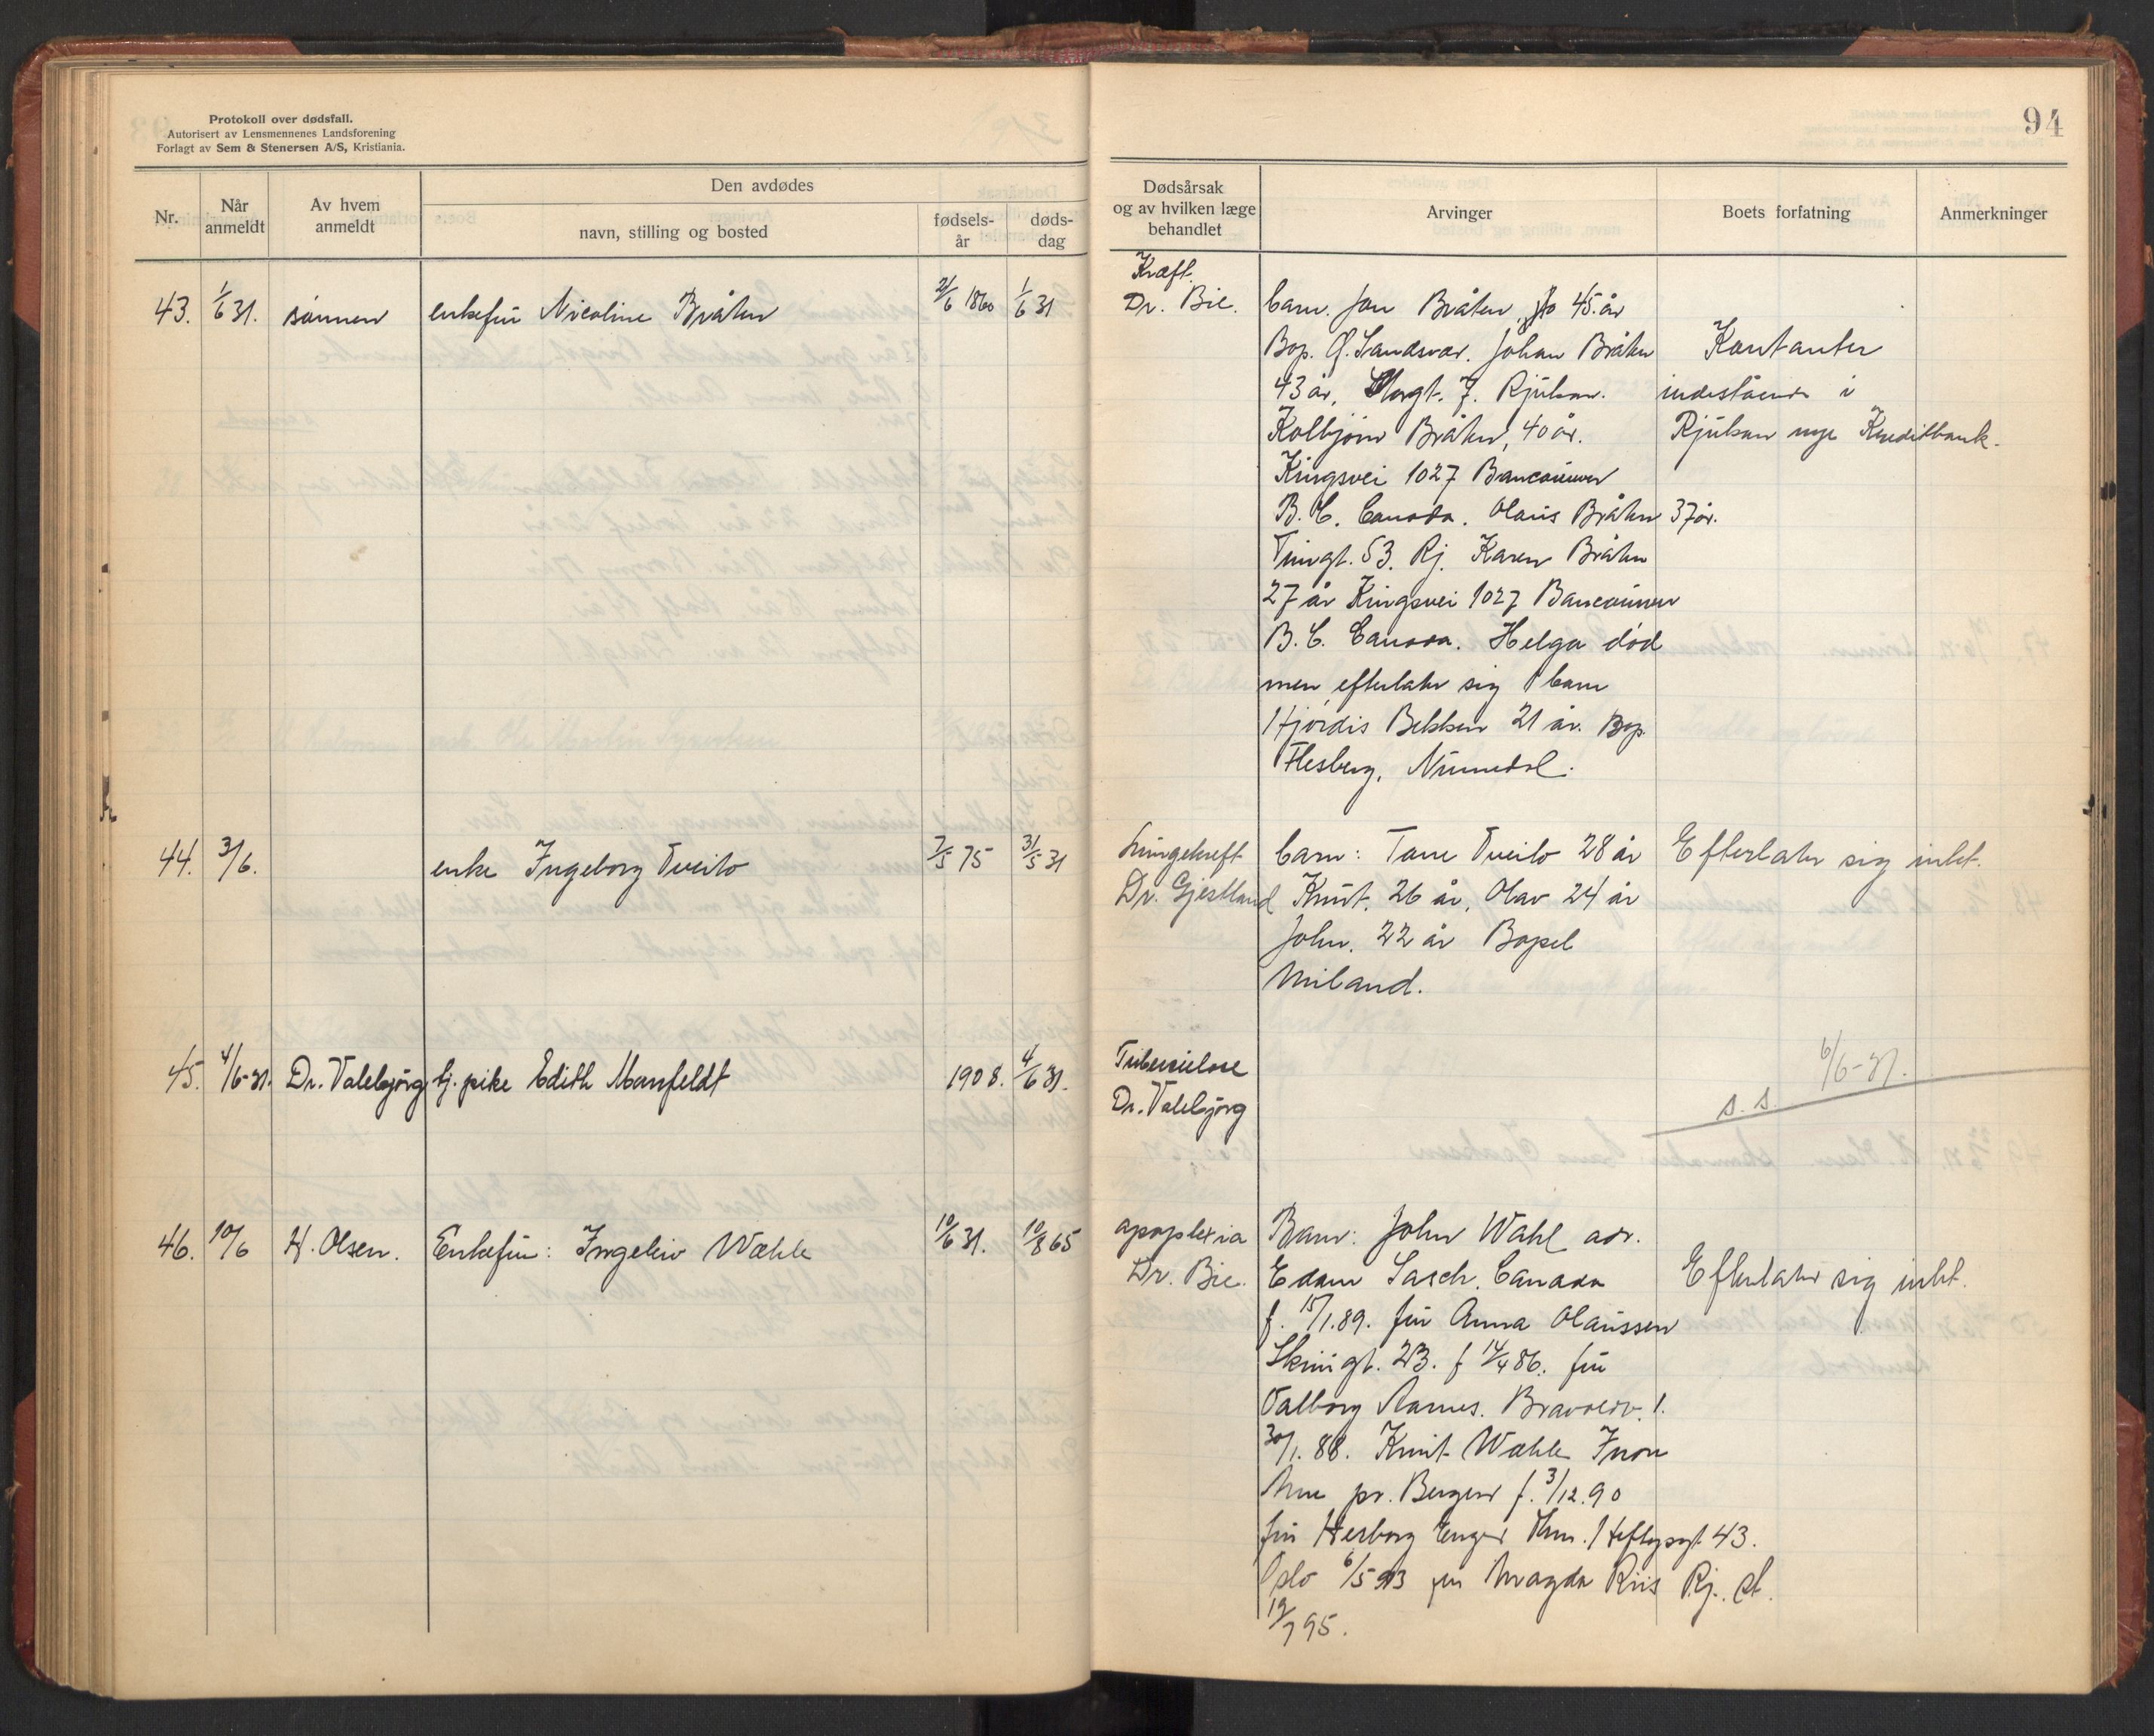 Protokoll over dødsfall.
Autorisert av Lensmennenes Landsforening
Forlagt av Sem & Stenersen A/S, Kristiania.
94
Nr.
Når anmeldt
Av hvem anmeldt
Den avdødes
navn, stilling og bosted
fødsels-år
døds-dag
Dødsårsak og av hvilken læge behandlet
Arvinger
Boets forfatning
Anmerkninger
43. 1/6 31. sønnen enkefru Nicoline Bråten 2/6 1860 1/6 31
Kræft.
Dr. Bie.
barn. Jon Bråten, 45 år
Bop. Ø. Sandsvær. Johan Bråten
43 år, 7. Rjukan.
Kolbjørn Bråten, 40 år.
Kingsvei 1027 Vancouver
B. C. Canada. Olaus Bråten 37 år.
Tingt. 53. Rj. Karen Bråten
27 år Kingsvei 1027 Vancouver
B. C. Canada. Helga død
men efterlater sig 1 barn
Hjørdis Bekken 21 år. Bop.
Flesberg, Numedal.
Kontanter
indestående i
Rjukan nye Kreditbank.
44. 3/6. enke Ingeborg Tveito 7/5 75 31/5 31
Lungekreft
Dr. Gjestland
barn: Tone Tveito 28 år
Knut. 26 år, Olav 24 år
John. 22 år Bopel
Miland.
Efterlater sig intet.
45. 4/6-31. Dr. Valebjørg tj. pike Edith Manfeldt 1908. 4/6 31.
Tuberculose
Dr. Valebjørg
6/6-31.
s. s.
46. 10/6 H. Olsen. Enkefru: Ingeleiv Wæhle 10/6 31. 10/8 65
apoplexia
Dr. Bie.
Barn: John Wahl adr.
Edam Sasch. Canada
f. 15/1.89. fru Anna Olaussen
Skrigt. 23. f 14/4 86. fru
Valborg Aarnes. 1.
30/1. 88. Knut Wæhle
pr. Bergen f. 3/12.90
fru Herborg Enger Thm. Heftyesgt 43.
Oslo 6/5 93 fru Magda Riis Rj. st.
19/7 95.
Efterlater sig intet.